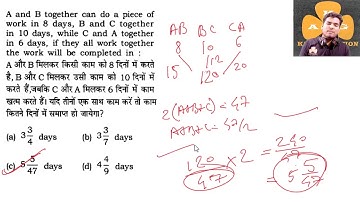 A and B together can do a piece of
work in 8 days, B and C together
in 10 days, while C and A together
in 6 days, if they all work together
the work will be completed in :
A और B मिलकर किसी काम को 8 दिनों में करते
है, B और C मिलकर उसी काम को 10 दिनों में
करते हैं,जबकि C और A मिलकर 6 दिनों में काम
खत्म करते हैं। यदि तीनों एक साथ काम करें तो काम
कितने दिनों में समाप्त हो जायेगा?
(a) 3 3/4 days (b) 3 3/7 days
(c) 5 5/47 days (d) 4 4/9 days
AB BC CA
8 10 6
15 12 20
120
2(A+B+C) = 47
A+B+C = 47/2
120/47 × 2 = 240/47
= 5 5/47